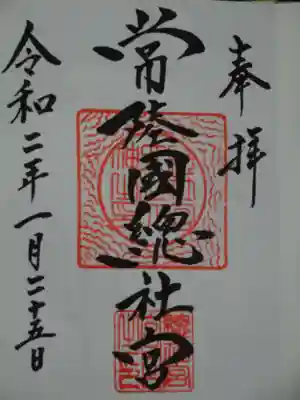 奉拝
常陸國總社宮
令和二年一月二十五日